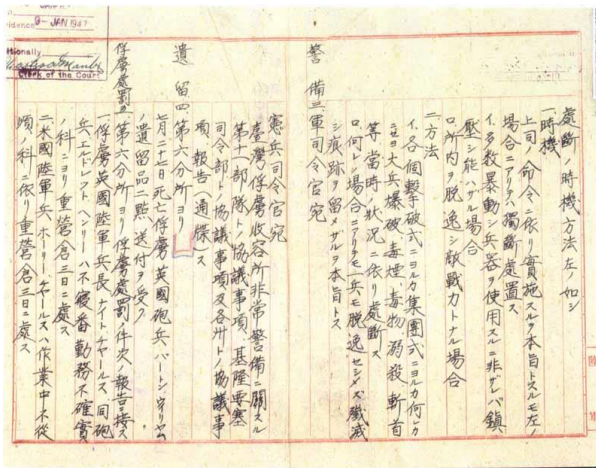 9- JAN 1947
Clerk of the Court
處斷ノ時機方法左ノ如シ
一、時機
上司ノ命令ニ依リ實施スルヲ本旨トスルモ左ノ
場合ニアリテハ獨斷處置ス
イ、多數暴動シ兵器ヲ使用スルニ非ザレバ鎭
壓シ能ハザル場合
ロ、所内ヲ脱逸シ敵戰力トナル場合
二、方法
イ、各個擊破式ニヨルカ集團式ニヨルカ何レカ
ニセヨ大兵爆破、毒煙、毒物、溺殺、斬首
等當時ノ狀況ニ依リ處斷ス
ロ、何レノ場合ニアリテモ一兵モ脱逸セシメズ殲滅
シ痕跡ヲ留メザルヲ本旨トス
警備三 軍司令官宛
憲兵司令官宛
臺灣俘虜收容所非常警備ニ關スル
第十一部隊トノ協議事項、基隆要塞
司令部トノ協議事項及各州トノ協議事
項報告(通牒)ス
遺留四 第六分所ヨリ
七月二十二日死亡俘虜英國砲兵バートンウイリヤム
ノ遺留品二點ノ送付ヲ受ク
俘虜處罰 第六分所ヨリ俘虜處罰ノ件次ノ報告ニ接ス
一、俘虜英國陸軍兵長ナイトチヤールス、同砲
兵エルドレフトヘンリーハ不寢番勤務不確實
ノ科ニヨリ重營倉三日ニ處ス
二、米國陸軍兵ホーリーチヤールスハ作業中不從
順ノ科ニ依リ重營倉三日ニ處ス